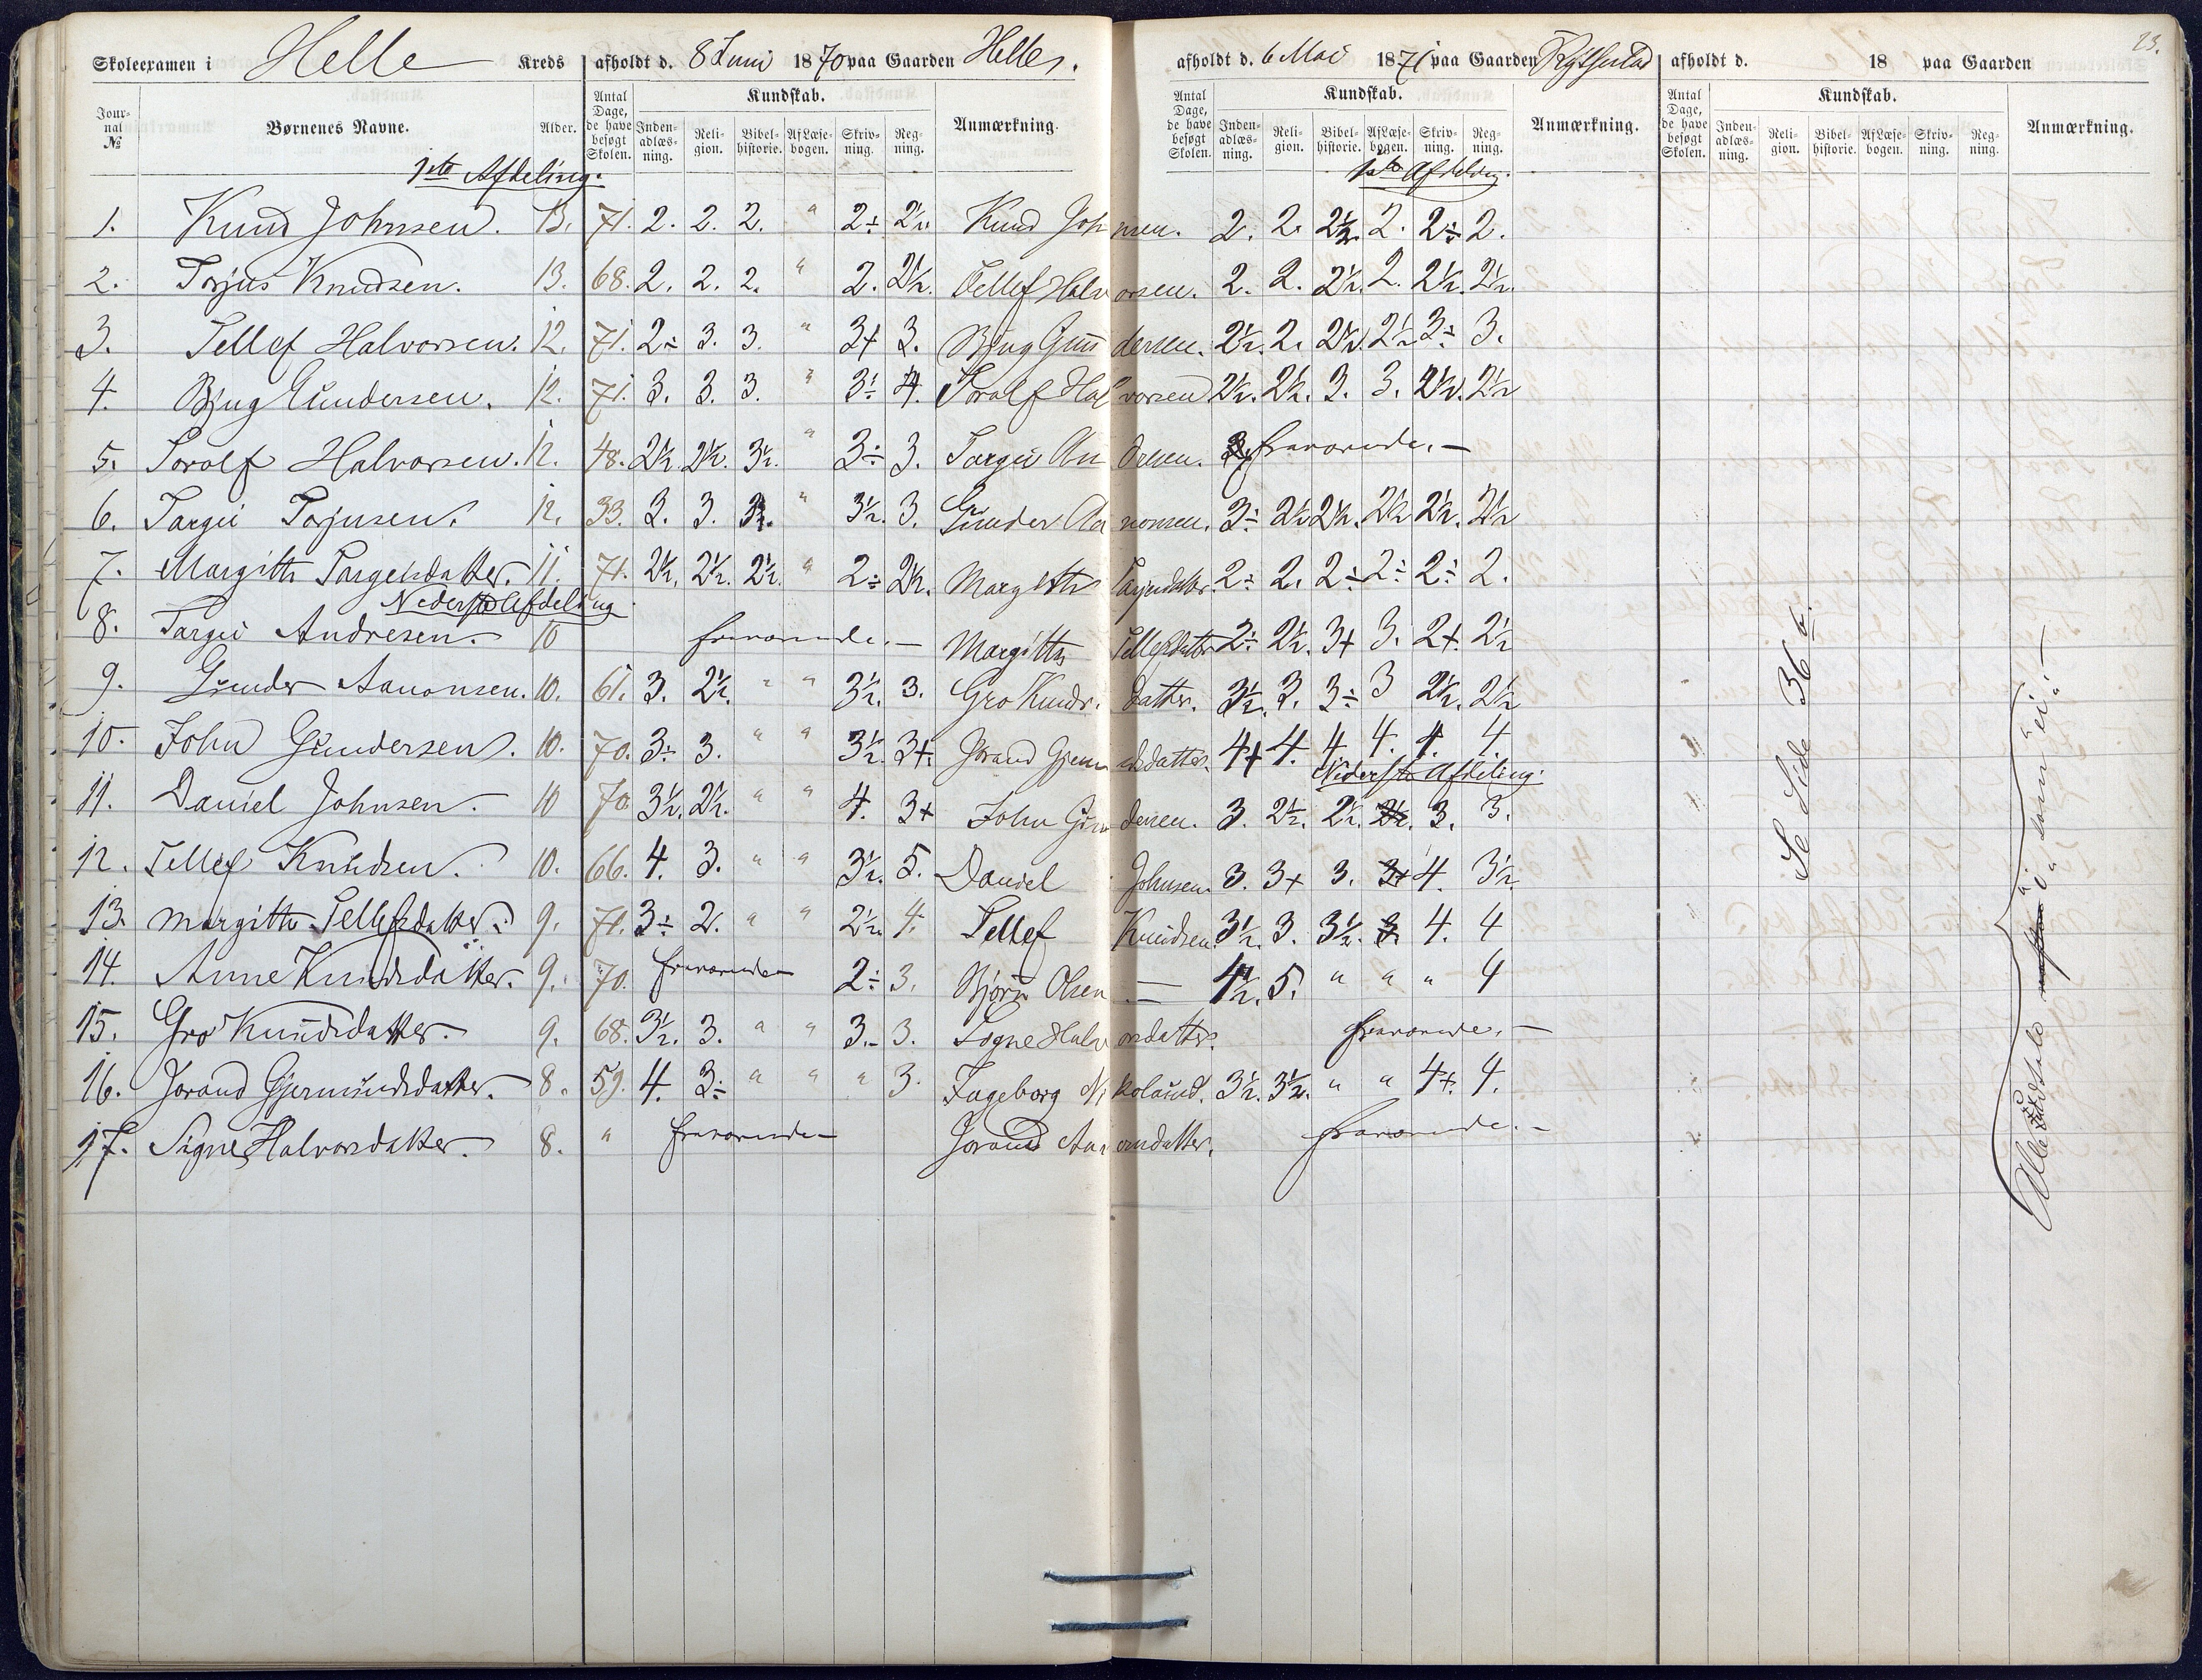 Skoleexamen i Helle Kreds afholdt d. 8 Juni 1870 paa Gaarden Helle.
Journal № Børnenes Navne. Alder. Antal Dage, de have besøgt Skolen. Kundskab. Indenadlæsning. Religion. Bibelhistorie. Af Læsebogen. Skrivning. Regning. Anmærkning.
1ste Afdeling.
1. Knud Johnsen. 13. 71. 2. 2. 2. " 2÷ 2½.
2. Torjus Knudsen. 13. 68. 2. 2. 2. " 2. 2½.
3. Tellef Halvorsen. 12. 71. 2÷ 3. 3. " 3+ 3.
4. Bjug Gundersen. 12. 71. 3. 3. 3. " 3÷ 4.
5. Torolf Halvorsen. 12. 48. 2½ 2½. 3½. " 3÷ 3.
6. Targei Torjusen. 12. 33. 3. 3. " 3½. 3.
7. Margith Targeisdatter. 11. 71. 2½. 2½. 2½. " 2÷ 2½.
Nederste Afdeling
8. Targei Andresen. 10 fraværende.—
9. Gunder Aanonsen. 10. 61. 3. 2½. " " 3½. 3.
10. John Gundersen. 10. 70. 3÷ 3. " " 3½. 3+.
11. Daniel Johnsen. 10 70 3½. 2½. " " 4. 3+
12. Tellef Knudsen. 10. 66. 4. 3. " " 3½. 5.
13. Margith Tellefsdatter. 9. 71. 3÷ 2. " " 2½. 4.
14. Anne Knudsdatter. 9. 70. fraværende 2÷ 3.
15. Gro Knudsdatter. 9. 68. 3½. 3. " " 3.- 3.
16. Jorand Gjermundsdatter. 8. 59. 4. 3÷ " " " 3.
17. Signe Halvorsdatter. 8. " fraværende
afholdt d. 6 Mai 1871 paa Gaarden Rygnestad
Antal Dage, de have besøgt Skolen. Kundskab. Indenadlæsning. Religion. Bibelhistorie. Af Læsebogen. Skrivning. Regning. Anmærkning.
1ste Afdeling.
Knud Johnsen. 2. 2. 2½. 2. 2÷ 2.
Tellef Halvorsen. 2. 2. 2½. 2. 2½. 2½.
Bjug Gundersen. 2½. 2. 2½. 2½ 3÷ 3.
Torolf Halvorsen 2½. 2½. 3. 3. 2½. 2½
Targei Andresen. fraværende.—
Gunder Aanonsen. 3÷ 2½ 2½. 2½ 2½. 2½
Margith Targeisdatter. 2÷ 2. 2÷ 2÷ 2÷ 2.
Margith Tellefsdatter 2÷ 2½. 3+ 3. 2+. 2½
Gro Knudsdatter. 3½. 3. 3÷ 3 2½. 2½
Jorand Gjermundsdatter. 4+ 4. 4. 4. 4. 4.
Nederste Afdeling.
John Gundersen. 3. 2½. 2½. 2½. 3. 3.
Daniel Johnsen. 3. 3+ 3. 3+ 4. 3½
Tellef Knudsen. 3½. 3. 3½. 3. 4. 4
Bjørn Olsen — 4½. 5. " " " 4
Signe Halvorsdatter. fraværende.—
Ingeborg Nikolausd. 3½. 3½. " " 4+. 4.
Jorand Aanonsdatter. fraværende.—
23.
afholdt d. 18 paa Gaarden
Antal Dage, de have besøgt Skolen. Kundskab. Indenadlæsning. Religion. Bibelhistorie. Af Læsebogen. Skrivning. Regning. Anmærkning.
Se Side 36 b.
Alle udtale "i" som "ei".—